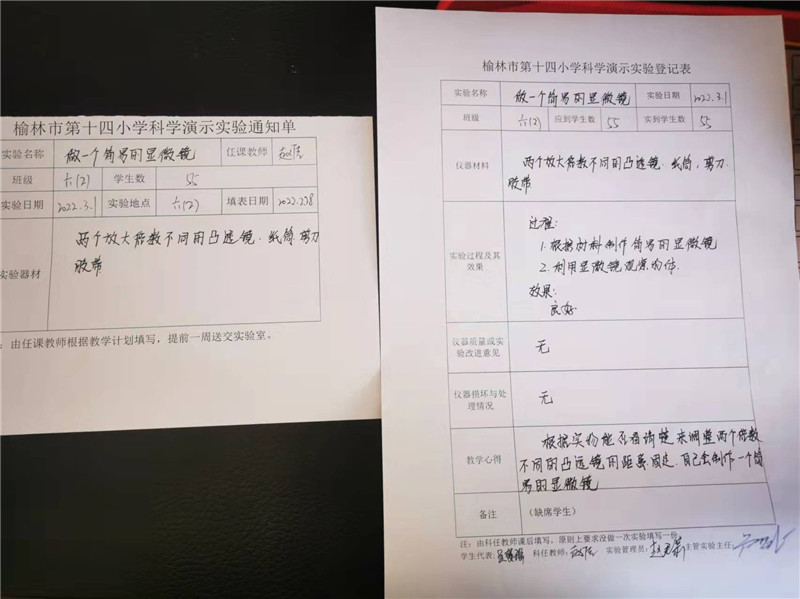 榆林市第十四小学科学演示实验通知单
实验名称 做一个简易的显微镜 任课教师
班级 六(2) 学生数 55
实验日期 2022.3.1 实验地点 六(2) 填表日期 2022.2.28
实验器材 两个放大倍数不同的凸透镜、纸筒、剪刀
胶带
：由任课教师根据教学计划填写，提前一周送交实验室。
榆林市第十四小学科学演示实验登记表
实验名称 做一个简易的显微镜 实验日期 2022.3.1
班级 六(2) 应到学生数 55 实到学生数 55
仪器材料 两个放大倍数不同的凸透镜、纸筒、剪刀
胶带
实验过程及其效果
过程：
1.根据材料制作简易的显微镜
2.利用显微镜观察物体.
效果：
良好
仪器质量或实验改进意见 无
仪器损坏与处理情况 无
教学心得 根据实物能否看清楚来调整两个倍数
不同的凸透镜的距离固定.自己会制作一个简
易的显微镜
备注 (缺席学生)
注：由科任教师课后填写，原则上要求没做一次实验填写一份
学生代表: 科任教师: 实验管理员: 主管实验主任: